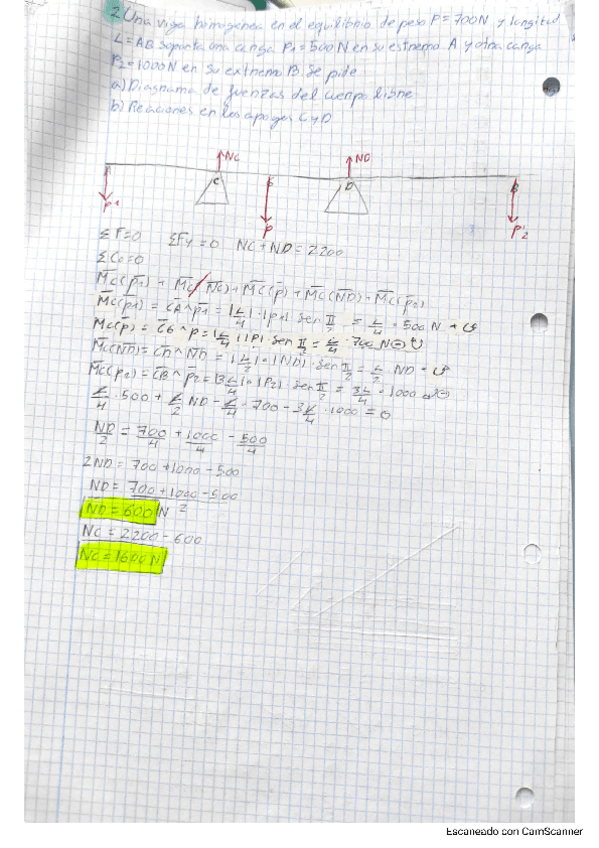 2. Una viga homogenea en el equilibrio de peso P = 700N y longitud
L = AB soporta una carga P1 = 500 N en su extremo A y otra carga
P2 = 1000N en su extremo B. Se pide
a) Diagrama de fuerzas del cuerpo libre
b) Reaciones en los apoyos C y D
NC ND
C D B
P1 P P2
ΣF=0 ΣFy=0 NC+ND=2200
ΣC0=0
Mc(p1) + Mc(NC) + Mc(p) + Mc(ND) + Mc(p2)
Mc(p1) = CA^p1 = |L/4|·|p1| sen π/2 = L/4 · 500 N
Mc(p) = CG ^ p = |L/4| |P| · sen π/2 = L/4 · 700 N (-)
Mc(ND) = CD ^ ND = |L/2| · |ND| · sen π/2 = L/2 · ND
Mc(p2) = CB ^ p2 = |3L/4| · |P2| · sen π/2 = 3L/4 · 1000 (-)
L/4 · 500 + L/2 ND - L/4 · 700 - 3L/4 · 1000 = 0
ND/2 = 700/4 + 1000/4 - 500/4
2ND = 700 + 1000 - 500
ND = 700 + 1000 - 500 / 2
ND = 600 N
NC = 2200 - 600
NC = 1600 N
Escaneado con CamScanner